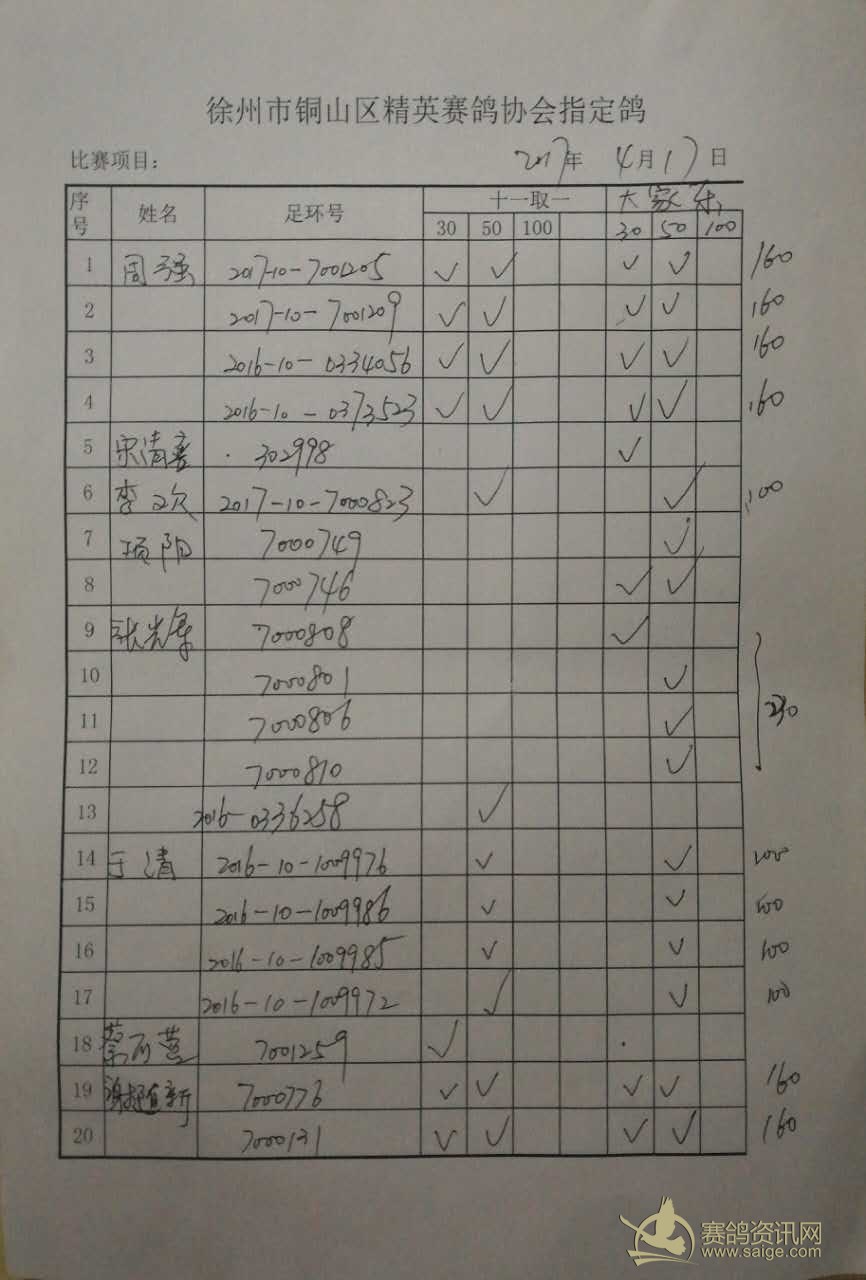 徐州市铜山区精英赛鸽协会指定鸽
比赛项目： 2017年 4月17日
序号 姓名 足环号 十一取一 大家乐
30 50 100 30 50 100
1 周强 2017-10-7001205 ✓ ✓ ✓ ✓ 160
2 2017-10-7001209 ✓ ✓ ✓ ✓ 160
3 2016-10-0334056 ✓ ✓ ✓ ✓ 160
4 2016-10-0373523 ✓ ✓ ✓ ✓ 160
5 宋清 302998 ✓
6 李文欠 2017-10-7000823 ✓ ✓ 100
7 项阳 7000749 ✓
8 7000746 ✓ ✓
9 张光 7000808 ✓
10 7000801 ✓
11 7000806 ✓ 230
12 7000810 ✓
13 2016-0336258 ✓
14 于清 2016-10-1009976 ✓ ✓ 100
15 2016-10-1009986 ✓ ✓ 100
16 2016-10-1009985 ✓ ✓ 100
17 2016-10-1009972 ✓ ✓ 100
18 蔡 7001259 ✓
19 谢 新 7000776 ✓ ✓ ✓ ✓ 160
20 7000131 ✓ ✓ ✓ ✓ 160
赛鸽资讯网
www.saige.com